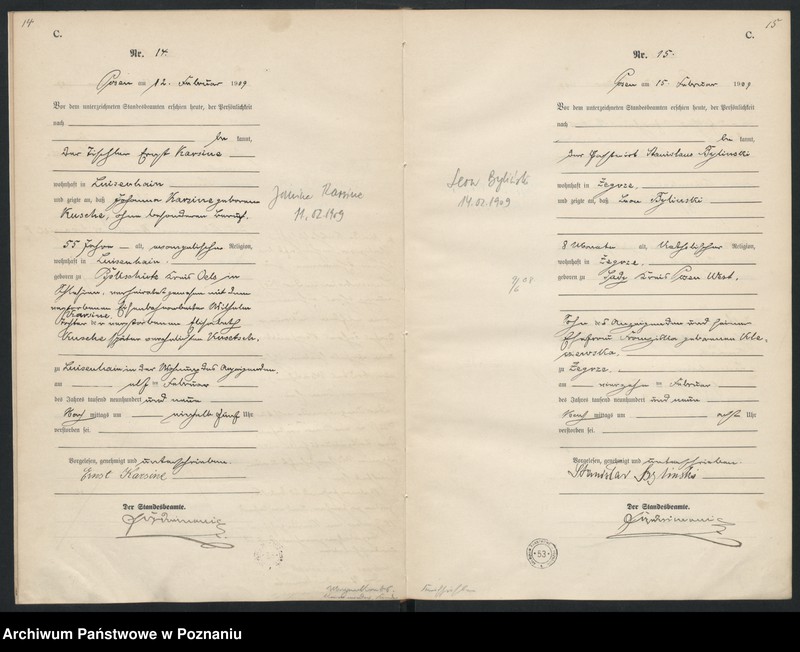 14
C.
Nr. 14.
Posen am 12. Februar 1909
Vor dem unterzeichneten Standesbeamten erschien heute, der Persönlichkeit
nach
be kannt,
der Tischler Ernst Karsine
wohnhaft in Luisenhain
und zeigte an, daß Johanna Karsine geborene
Kusche, ohne besonderen Beruf,
55 Jahre alt, evangelischer Religion,
wohnhaft in Luisenhain
geboren zu Kreis Oels in
Schlesien, verheiratet gewesen mit dem
verstorbenen Eisenbahnarbeiter Wilhelm
Karsine,
Tochter der verstorbenen Elisabeth
Kusche später verehelichten
zu Luisenhain, in der Wohnung des Anzeigenden,
am elf ten Februar
des Jahres tausend neunhundert und neun
Nach mittags um einhalb fünf Uhr
verstorben sei.
Vorgelesen, genehmigt und unterschrieben.
Ernst Karsine
Der Standesbeamte.
Karsine
11.02.1909
15
C.
Nr. 15.
Posen am 15. Februar 1909
Vor dem unterzeichneten Standesbeamten erschien heute, der Persönlichkeit
nach
be kannt,
der Stanislaus Bylinski
wohnhaft in Zegrze
und zeigte an, daß Leon Bylinski
8 Monate alt, katholischer Religion,
wohnhaft in Zegrze,
geboren zu Kreis Posen West,
Sohn des Anzeigenden und seiner
Ehefrau geborenen
zu Zegrze
am vierzehn ten Februar
des Jahres tausend neunhundert und neun
Nach mittags um acht Uhr
verstorben sei.
Vorgelesen, genehmigt und unterschrieben.
Stanislaw Bylinski
Der Standesbeamte.
Leon Byliński
14.02.1909
53
Archiwum Państwowe w Poznaniu